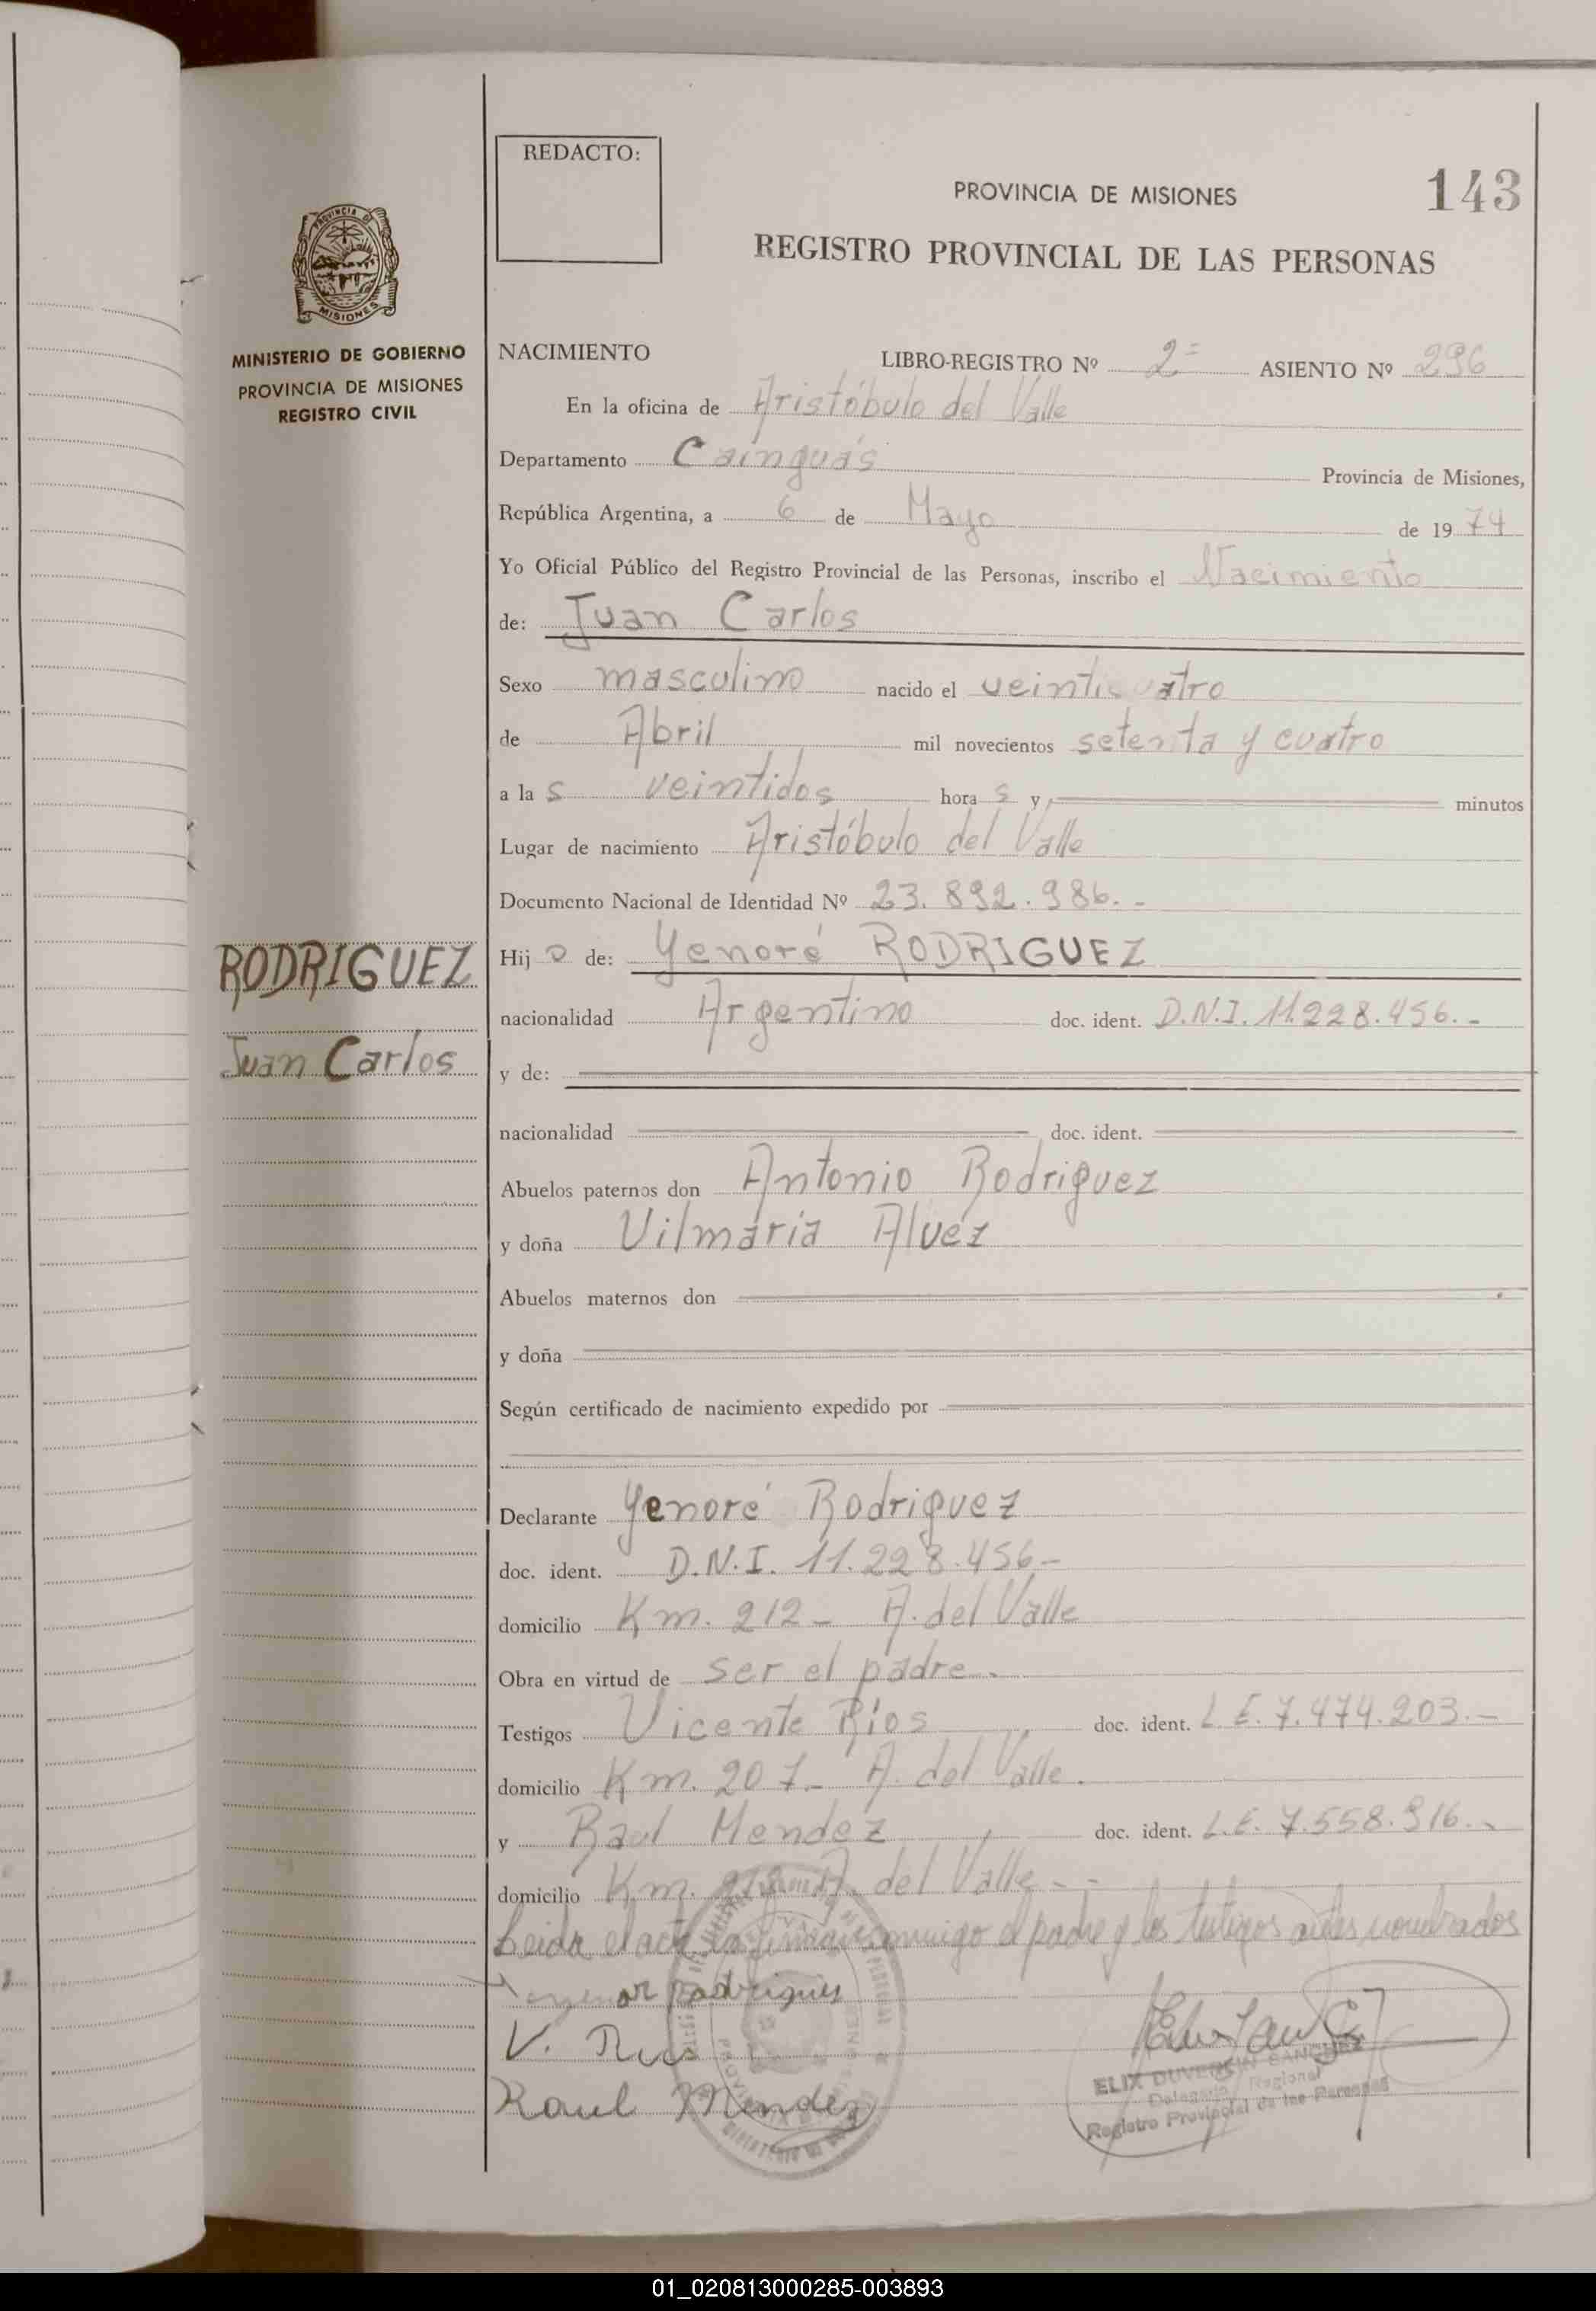 REDACTO:
PROVINCIA DE MISIONES
143
REGISTRO PROVINCIAL DE LAS PERSONAS
PROVINCIA DE
MISIONES
MINISTERIO DE GOBIERNO
PROVINCIA DE MISIONES
REGISTRO CIVIL
NACIMIENTO LIBRO-REGISTRO Nº 2= ASIENTO Nº 296
En la oficina de Aristóbulo del Valle
Departamento Cainguás Provincia de Misiones,
República Argentina, a 6 de Mayo de 1974
Yo Oficial Público del Registro Provincial de las Personas, inscribo el Nacimiento
de: Juan Carlos
Sexo masculino nacido el veinticuatro
de Abril mil novecientos setenta y cuatro
a las veintidos horas y minutos
Lugar de nacimiento Aristóbulo del Valle
Documento Nacional de Identidad Nº 23.892.986.-
RODRIGUEZ
Juan Carlos
Hijo de: Yenoré RODRIGUEZ
nacionalidad Argentino doc. ident. D.N.I. 11.228.456.-
y de:
nacionalidad doc. ident.
Abuelos paternos don Antonio Rodriguez
y doña Vilmaria Alvez
Abuelos maternos don
y doña
Según certificado de nacimiento expedido por
Declarante Yenoré Rodriguez
doc. ident. D.N.I. 11.228.456-
domicilio Km. 212- A. del Valle
Obra en virtud de ser el padre.
Testigos Vicente Ríos, doc. ident. L.E. 7.474.203.-
domicilio Km. 207- A. del Valle.
y Raul Mendez, doc. ident. L.E. 7.558.916.-
domicilio Km. A. del Valle.-
Leida el acta la firman conmigo el padre y los testigos antes nombrados
rodrigues
V. Rios
Raul Mendez
ELIX DUVERGIN SANCHEZ
Delegado Regional
Registro Provincial de las Personas
01_020813000285-003893